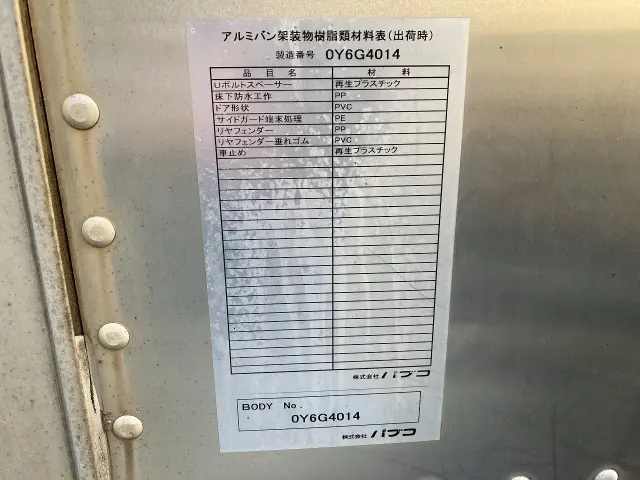 アルミバン架装物樹脂類材料表(出荷時)
製造番号 0Y6G4014
品目名 材料
Uボルトスペーサー 再生プラスチック
床下防水工作 PP
ドア形状 PVC
サイドガード端末処理 PE
リヤフェンダー PP
リヤフェンダー垂れゴム PVC
車止め 再生プラスチック
株式会社 パブコ
BODY No.
0Y6G4014
株式会社 パブコ